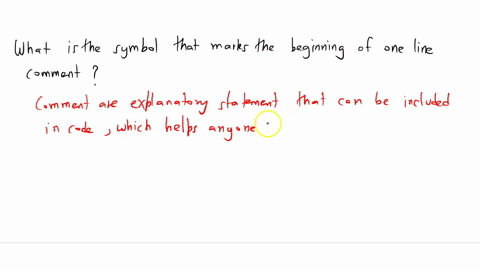 What is the symbol that marks the beginning of one line
comment ?
Comment are explanatory statement that can be included
in code , which helps anyone